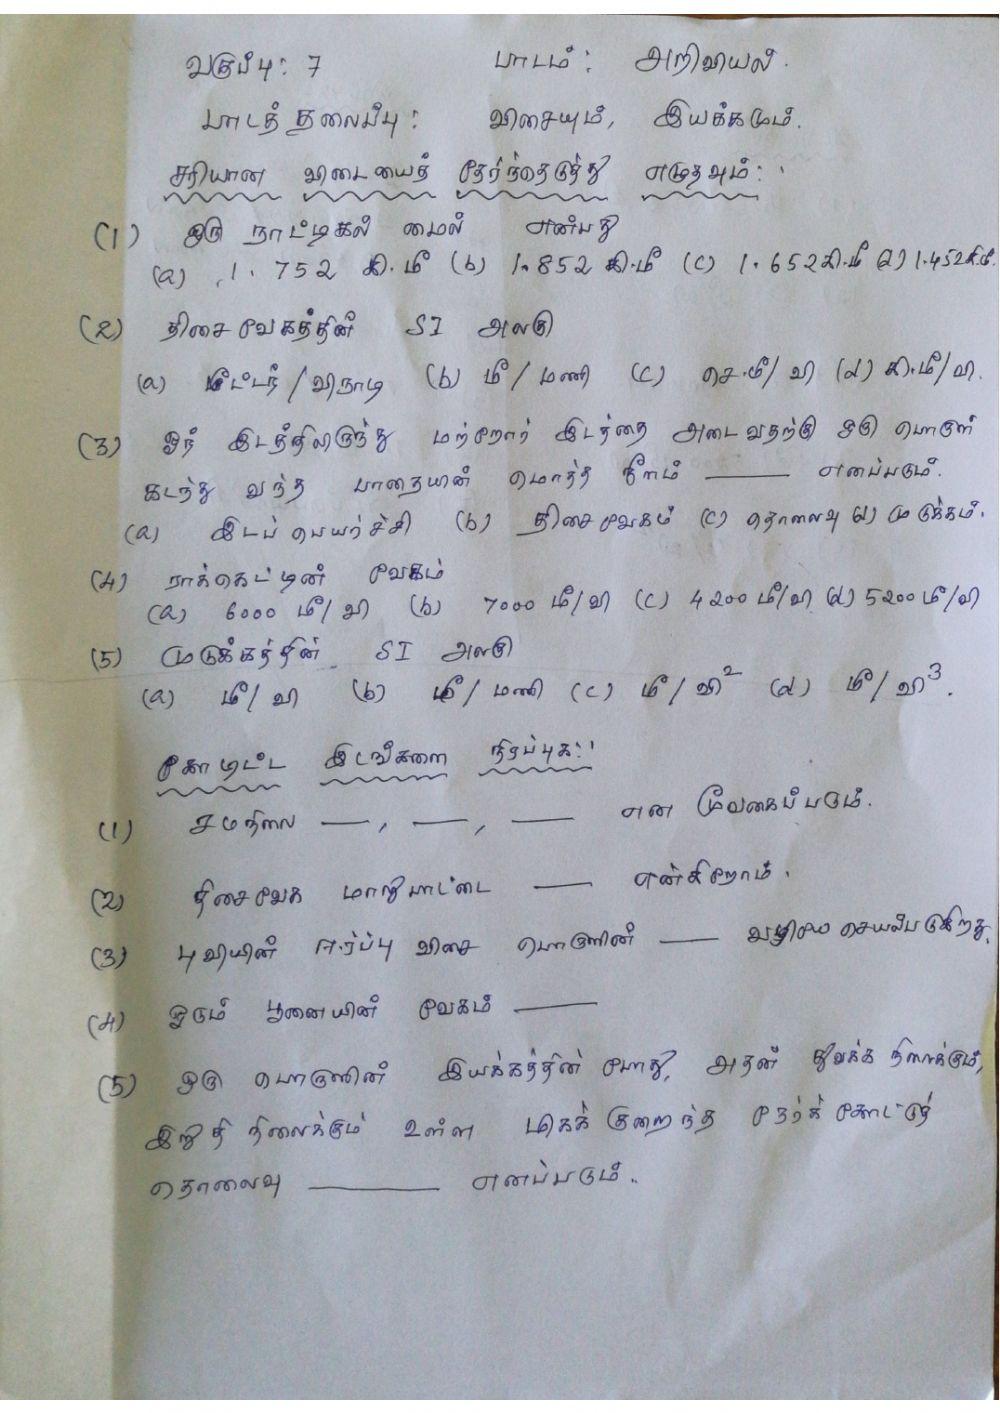 வகுப்பு: 7 பாடம்: அறிவியல்.
பாடத் தலைப்பு: விசையும், இயக்கமும்.
சரியான விடையைத் தேர்ந்தெடுத்து எழுதவும்:
(1) ஒரு நாட்டிகல் மைல் என்பது
(a) 1.752 கி.மீ (b) 1.852 கி.மீ (c) 1.652 கி.மீ (d) 1.452 கி.மீ.
(2) திசைவேகத்தின் SI அலகு
(a) மீட்டர்/விநாடி (b) மீ/மணி (c) செ.மீ/வி (d) கி.மீ/வி.
(3) ஓர் இடத்திலிருந்து மற்றோர் இடத்தை அடைவதற்கு ஒரு பொருள்
கடந்து வந்த பாதையின் மொத்த நீளம் ——— எனப்படும்.
(a) இடப் பெயர்ச்சி (b) திசைவேகம் (c) தொலைவு (d) முடுக்கம்.
(4) ராக்கெட்டின் வேகம்
(a) 6000 மீ/வி (b) 7000 மீ/வி (c) 4200 மீ/வி (d) 5200 மீ/வி
(5) முடுக்கத்தின் SI அலகு
(a) மீ/வி (b) மீ/மணி (c) மீ/வி² (d) மீ/வி³.
கோடிட்ட இடங்களை நிரப்புக:
(1) சமநிலை ——, ——, —— என மூவகைப்படும்.
(2) திசைவேக மாறுபாட்டை —— என்கிறோம்.
(3) புவியின் ஈர்ப்பு விசை பொருளின் —— வழியே செயல்படுகிறது.
(4) ஓடும் பூனையின் வேகம் ———
(5) ஒரு பொருளின் இயக்கத்தின் போது, அதன் துவக்க நிலைக்கும்,
இறுதி நிலைக்கும் உள்ள மிகக் குறைந்த நேர்க் கோட்டுத்
தொலைவு ———— எனப்படும்.